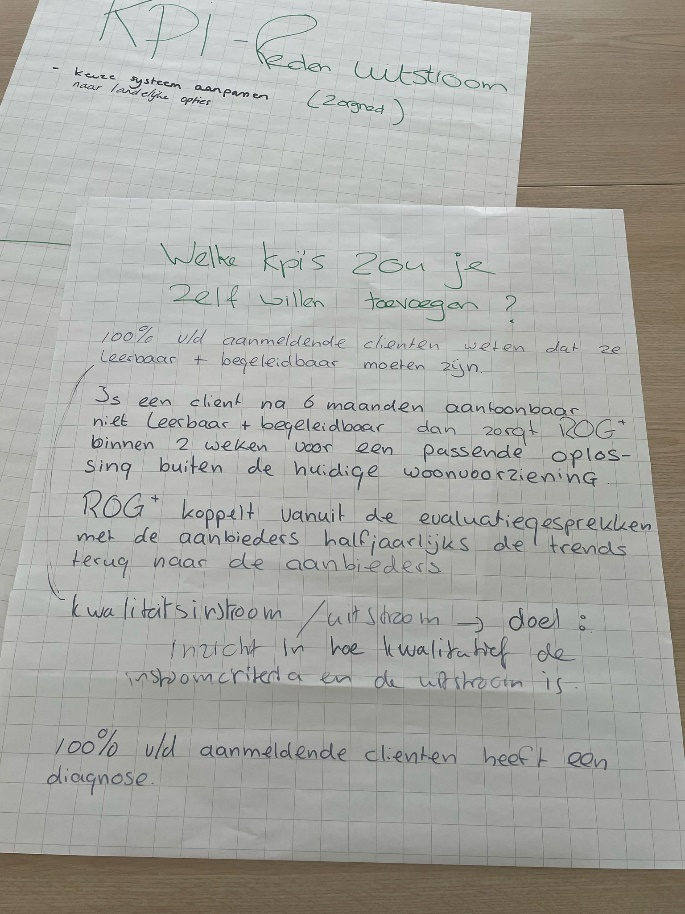 KPI - Reden uitstroom
- keuze systeem aanpassen
naar landelijke opties
(zorgned)
Welke kpi's zou je
zelf willen toevoegen ?
100% v/d aanmeldende clienten weten dat ze
leerbaar + begeleidbaar moeten zijn.
Is een client na 6 maanden aantoonbaar
niet leerbaar + begeleidbaar dan zorgt ROG+
binnen 2 weken voor een passende oplos-
sing buiten de huidige woonvoorziening.
ROG+ koppelt vanuit de evaluatiegesprekken
met de aanbieders halfjaarlijks de trends
terug naar de aanbieders
kwalitatsinstroom / uitstroom → doel :
inzicht in hoe kwalitatief de
instroomcriteria en de uitstroom is.
100% v/d aanmeldende clienten heeft een
diagnose.